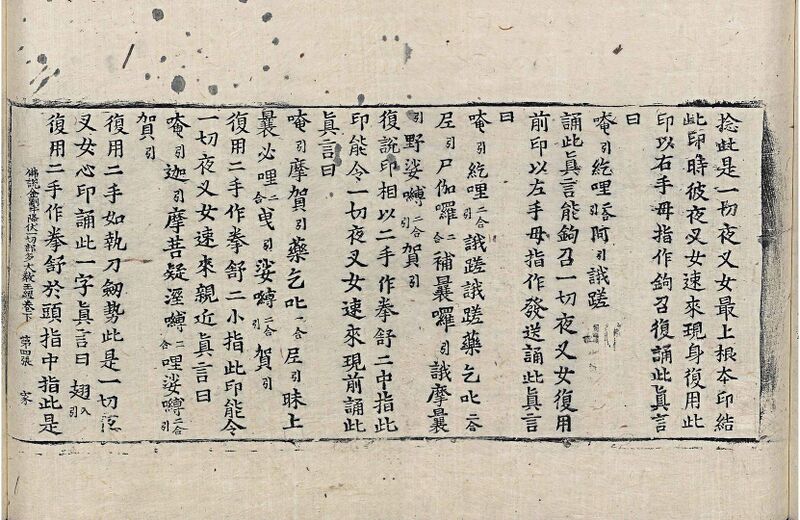 捻此是一切夜叉女最上根本印結
此印時彼夜叉女速來現身復用此
印以右手母指作鉤召復誦此真言
曰
唵引紇哩二合阿引誐蹉
誦此真言能鉤召一切夜叉女復用
前印以左手母指作發送誦此真言
曰
唵引紇哩二合誐蹉誐蹉藥乞叱二合
𡰱引尸伽囉二合補曩囉引誐摩曩
引野娑嚩二合引賀引
復說印相以二手作拳舒二中指此
印能令一切夜叉女速來現前誦此
真言曰
唵引摩賀引藥乞叱二合𡰱引昧上
曩必哩二合曵引娑嚩二合引賀引
復用二手作拳舒二小指此印能令
一切夜叉女速來親近真言曰
唵引迦引摩菩疑溼嚩二合哩娑嚩二合引
賀引
復用二手如執刀劒勢此是一切夜
叉女心印誦此一字真言曰 翅引入
復用二手作拳舒於頭指中指此是
佛說金剛手降伏一切部多大教王經卷下 第四張 家